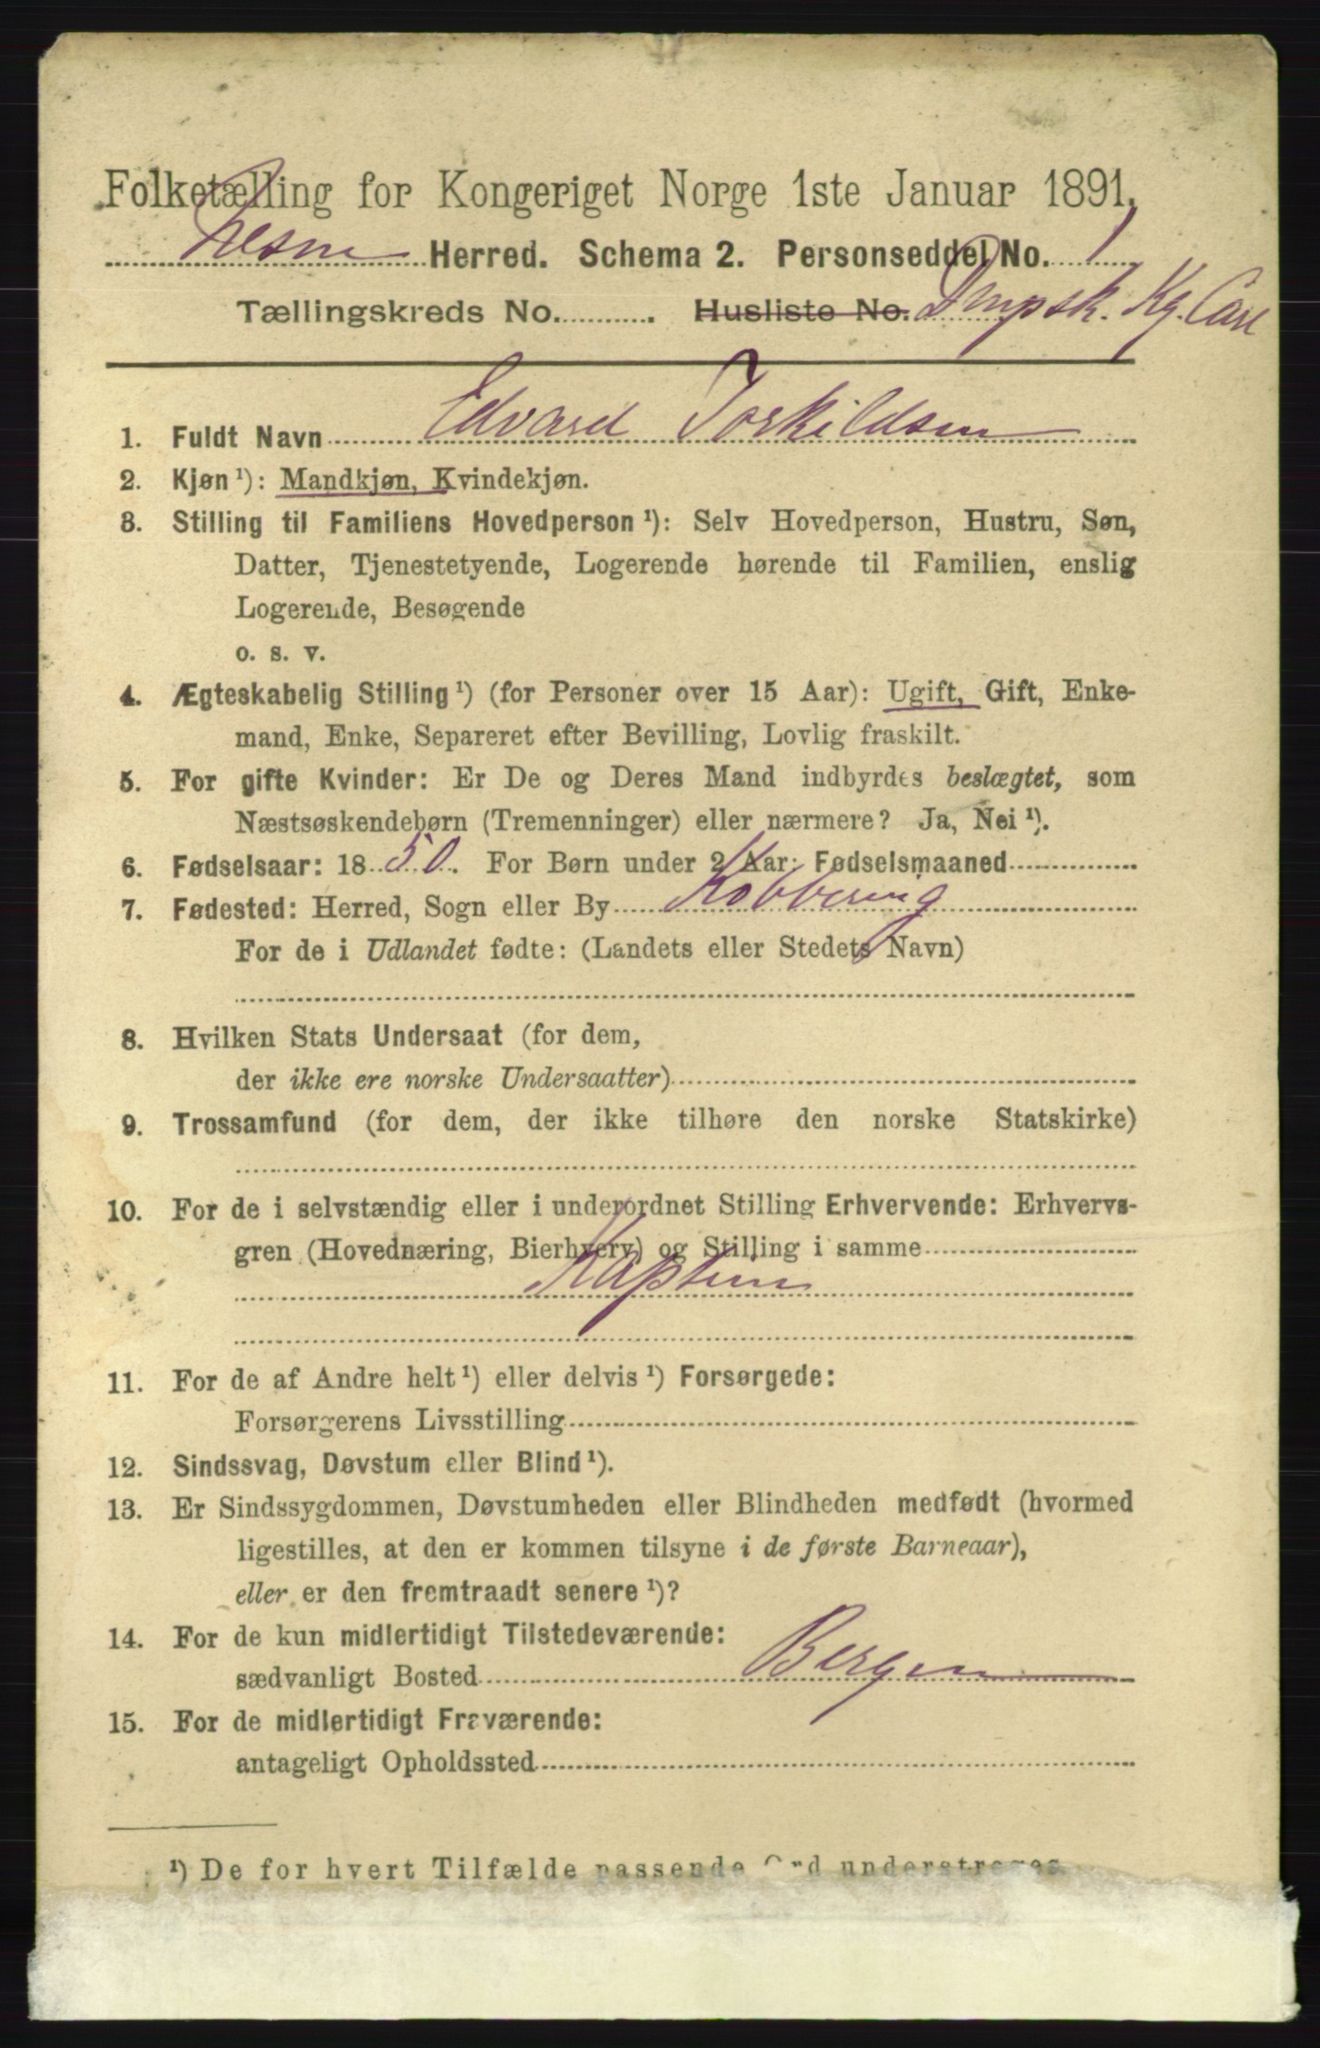 Folketælling for Kongeriget Norge 1ste Januar 1891.
Nesne Herred. Schema 2. Personseddel No. 1
Tællingskreds No. Husliste No. Dmpsk. Kg. Carl
1. Fuldt Navn Edvard Torkildsen
2. Kjøn ¹): Mandkjøn, Kvindekjøn.
3. Stilling til Familiens Hovedperson ¹): Selv Hovedperson, Hustru, Søn,
Datter, Tjenestetyende, Logerende hørende til Familien, enslig
Logerende, Besøgende
o. s. v.
4. Ægteskabelig Stilling ¹) (for Personer over 15 Aar): Ugift, Gift, Enke-
mand, Enke, Separeret efter Bevilling, Lovlig fraskilt.
5. For gifte Kvinder: Er De og Deres Mand indbyrdes beslægtet, som
Næstsøskendebørn (Tremenninger) eller nærmere? Ja, Nei ¹).
6. Fødselsaar: 1850. For Børn under 2 Aar: Fødselsmaaned
7. Fødested: Herred, Sogn eller By Kobbervig
For de i Udlandet fødte: (Landets eller Stedets Navn)
8. Hvilken Stats Undersaat (for dem,
der ikke ere norske Undersaatter)
9. Trossamfund (for dem, der ikke tilhøre den norske Statskirke)
10. For de i selvstændig eller i underordnet Stilling Erhvervende: Erhvervs-
gren (Hovednæring, Bierhverv) og Stilling i samme
Kaptein
11. For de af Andre helt ¹) eller delvis ¹) Forsørgede:
Forsørgerens Livsstilling
12. Sindssvag, Døvstum eller Blind ¹).
13. Er Sindssygdommen, Døvstumheden eller Blindheden medfødt (hvormed
ligestilles, at den er kommen tilsyne i de første Barneaar),
eller er den fremtraadt senere ¹)?
14. For de kun midlertidigt Tilstedeværende:
sædvanligt Bosted Bergen
15. For de midlertidigt Fraværende:
antageligt Opholdssted
¹) De for hvert Tilfælde passende Ord understreges.